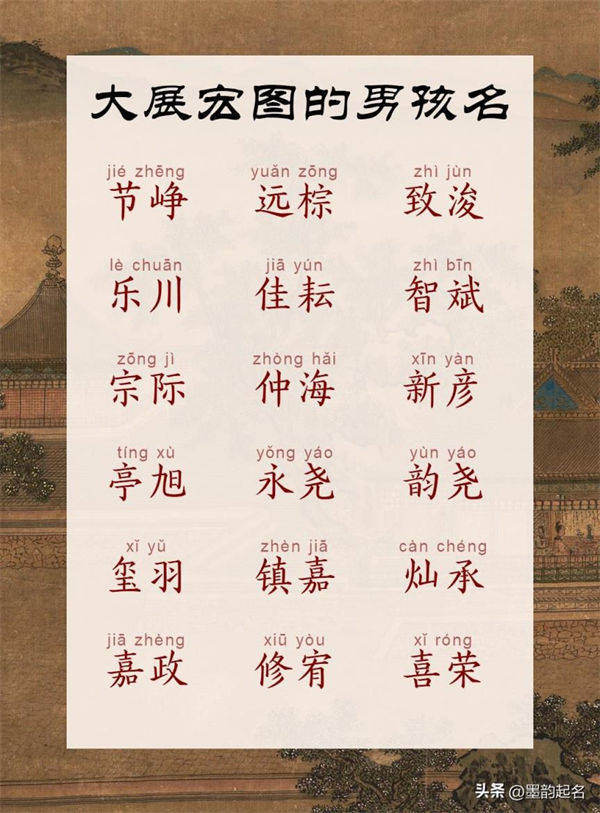 大展宏图的男孩名
jié zhēng yuǎn zōng zhì jùn
节峥 远棕 致浚
lè chuān jiā yún zhì bīn
乐川 佳耘 智斌
zōng jì zhòng hǎi xīn yàn
宗际 仲海 新彦
tíng xù yǒng yáo yùn yáo
亭旭 永尧 韵尧
xǐ yǔ zhèn jiā càn chéng
玺羽 镇嘉 灿承
jiā zhèng xiū yòu xǐ róng
嘉政 修宥 喜荣
头条 @墨韵起名